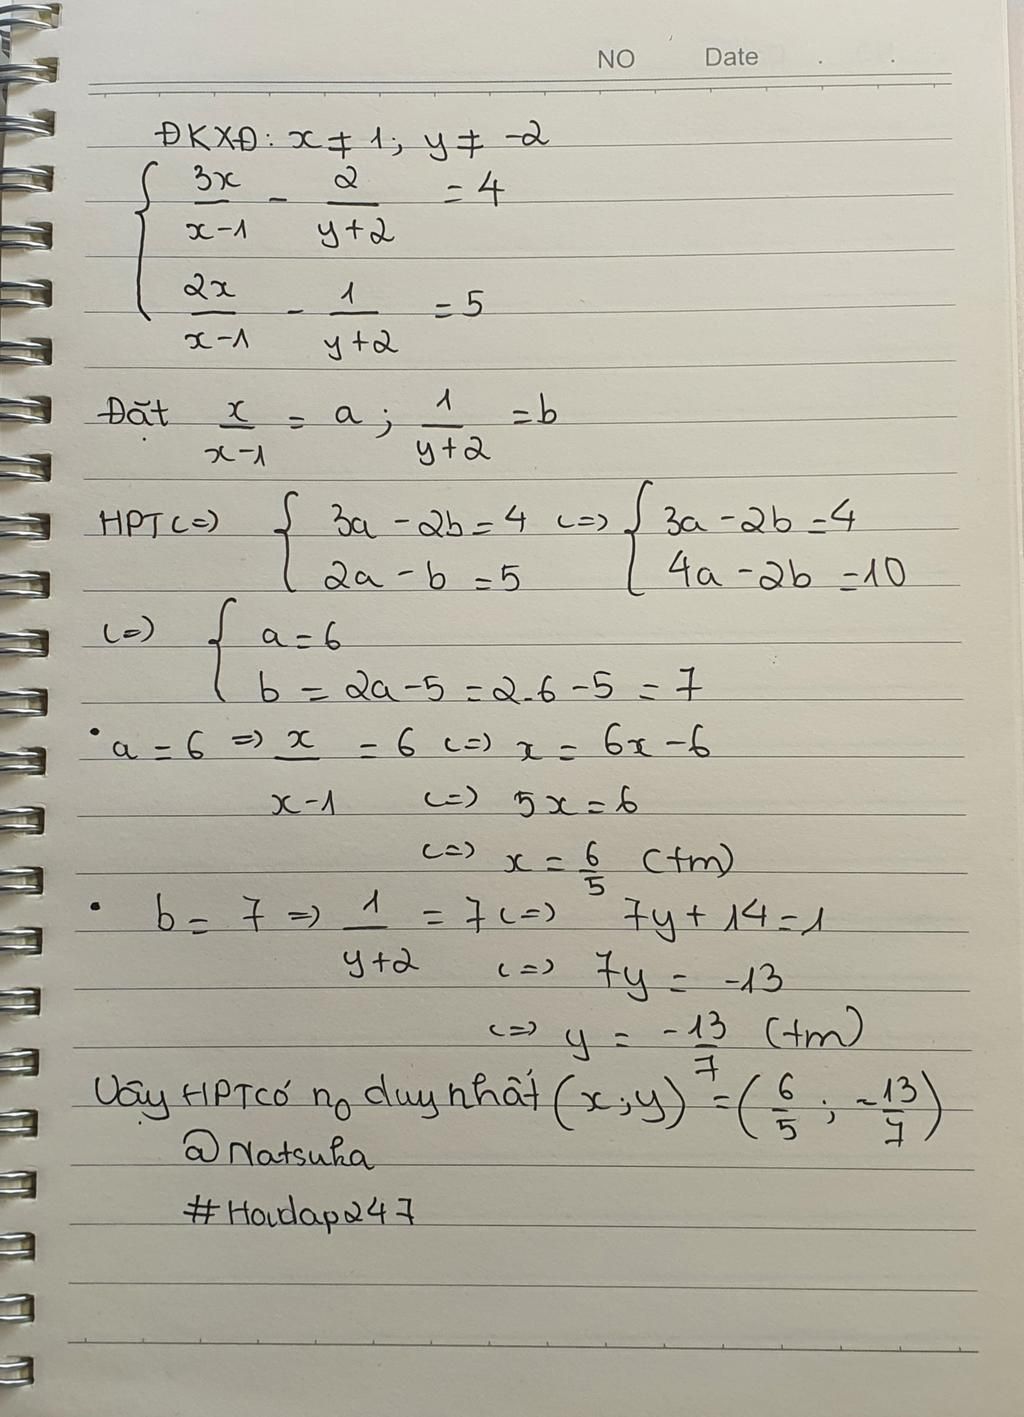 NO Date
ĐKXĐ: x ≠ 1; y ≠ -2
{ 3x/(x-1) - 2/(y+2) = 4
2x/(x-1) - 1/(y+2) = 5
Đặt x/(x-1) = a; 1/(y+2) = b
HPT (=) { 3a - 2b = 4 (=) { 3a - 2b = 4
2a - b = 5 4a - 2b = 10
(=) { a = 6
b = 2a - 5 = 2.6 - 5 = 7
• a = 6 => x/(x-1) = 6 (=) x = 6x - 6
(=) 5x = 6
(=) x = 6/5 (tm)
• b = 7 => 1/(y+2) = 7 (=) 7y + 14 = 1
(=) 7y = -13
(=) y = -13/7 (tm)
Vậy HPT có no duy nhất (x;y) = (6/5; -13/7)
@Natsuka
#Hoidap247